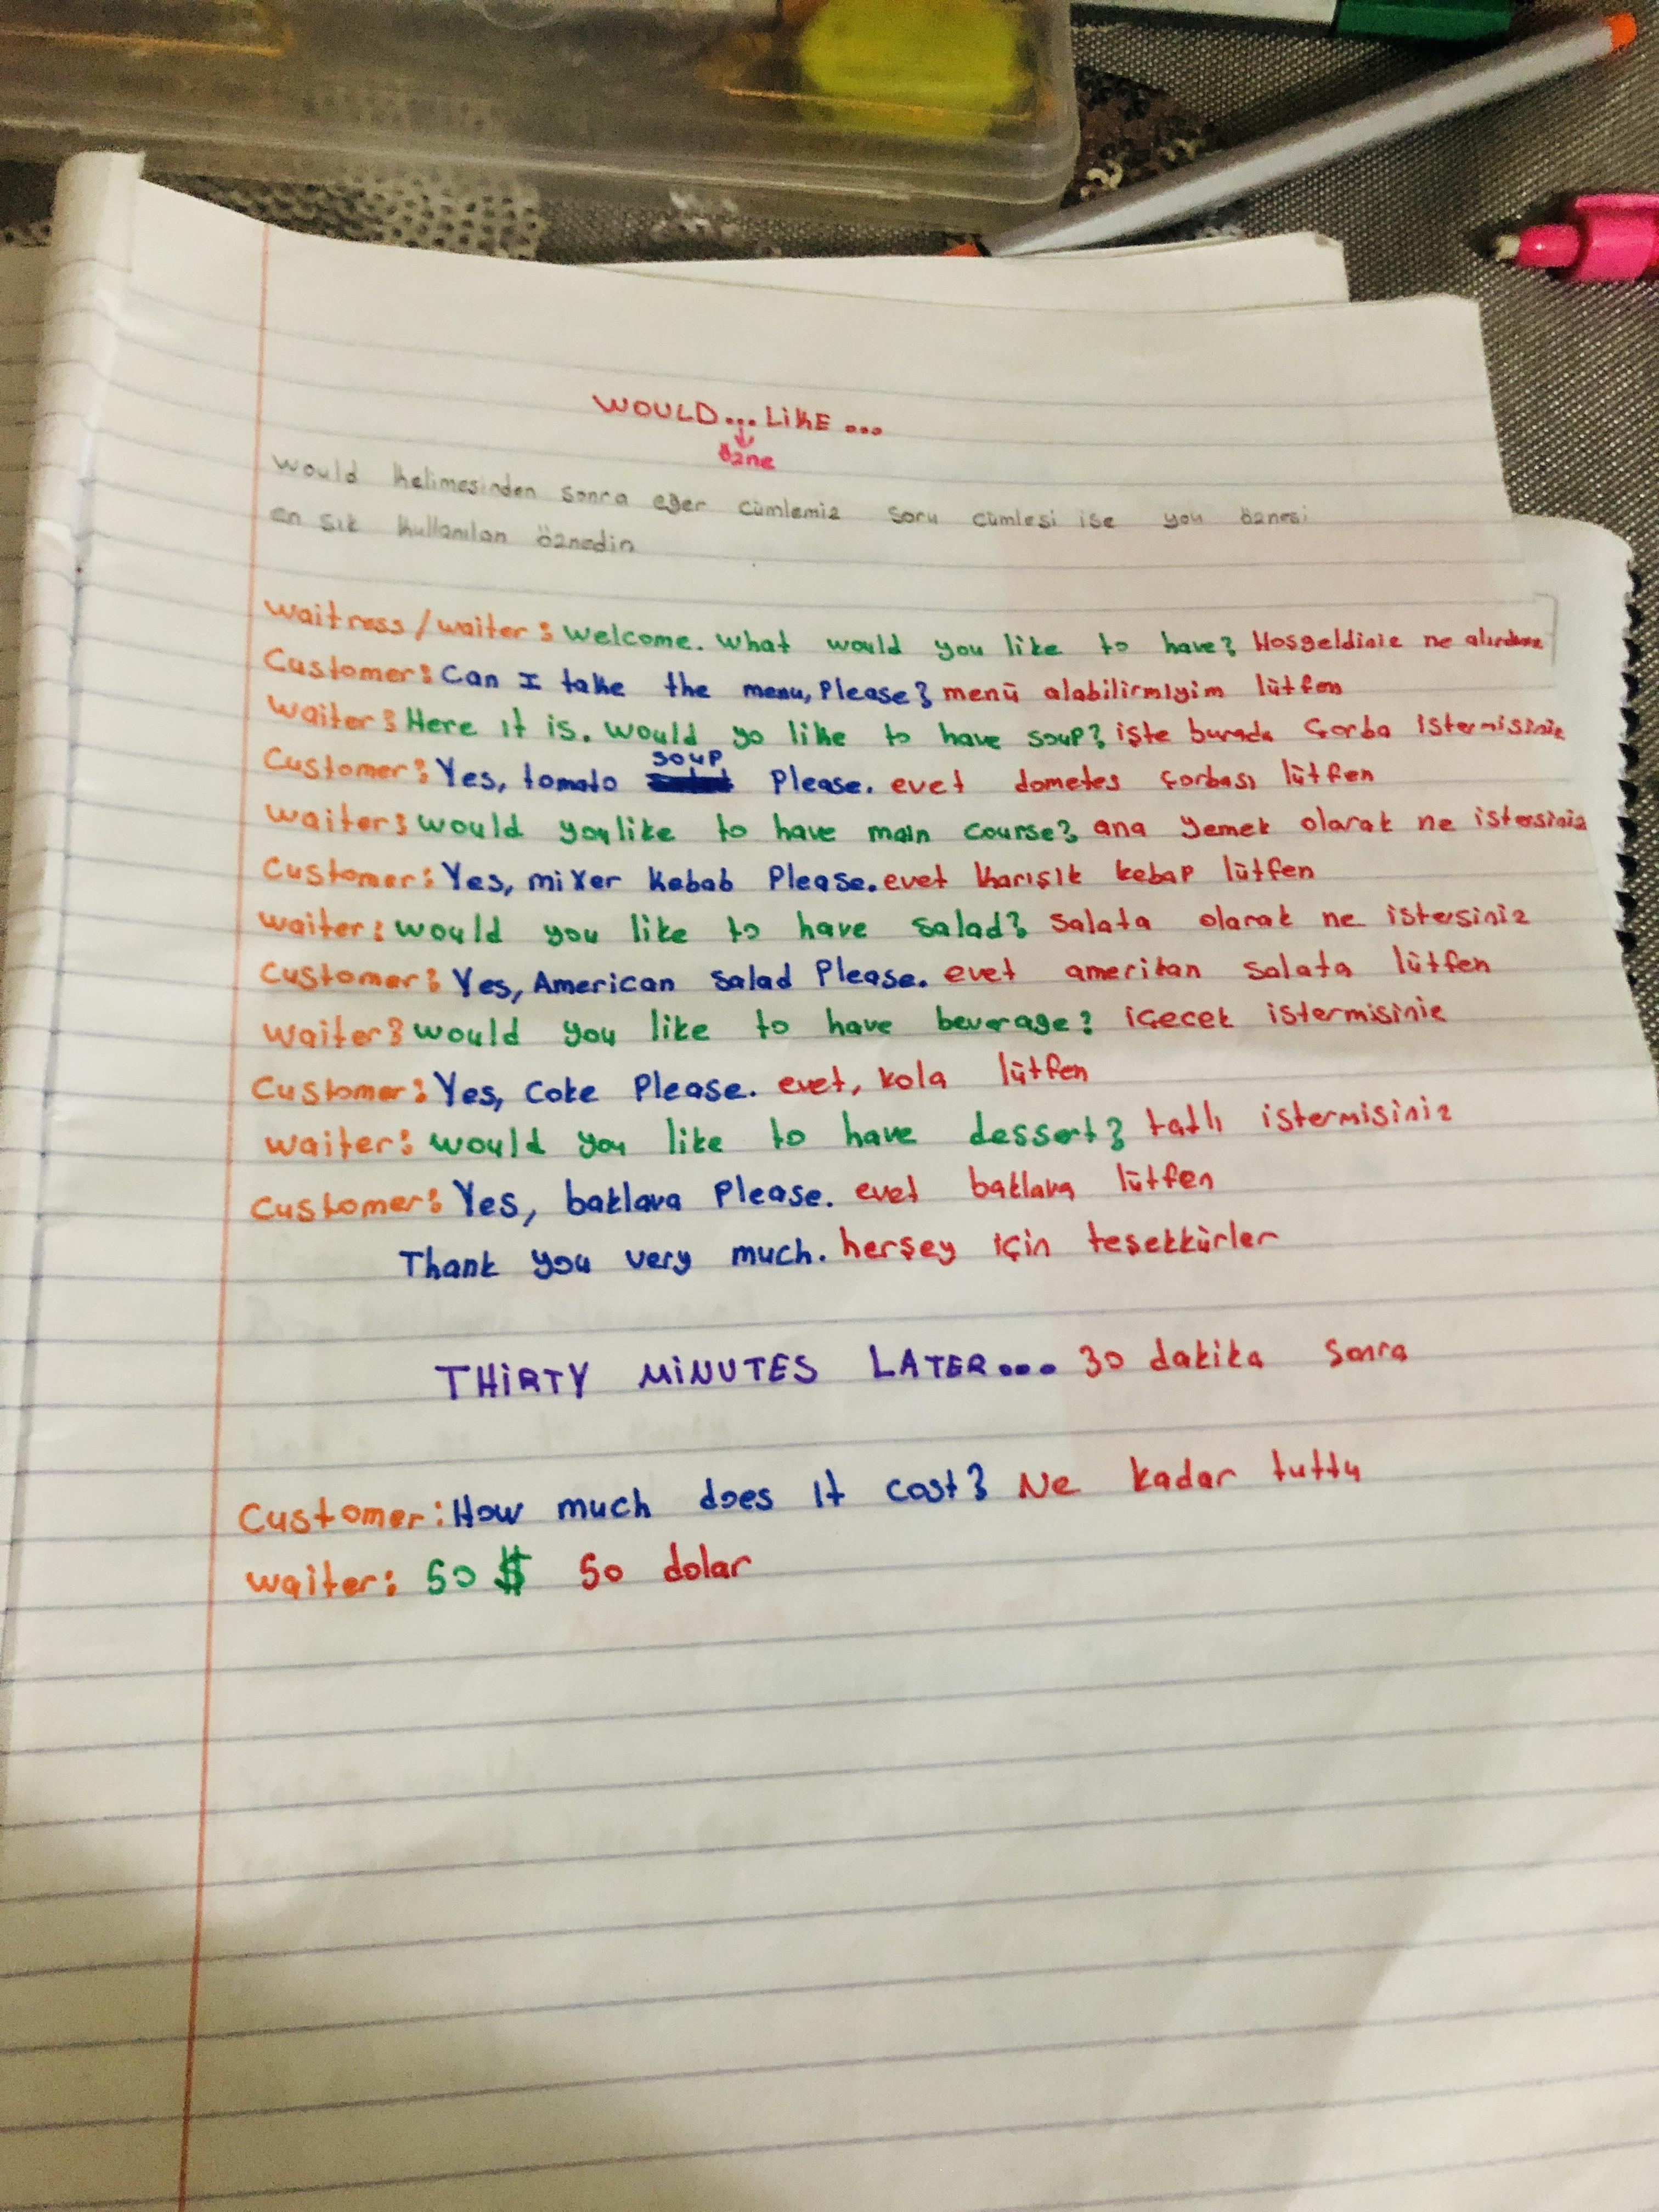 WOULD... LiKE ...
özne
Would kelimesinden sonra eğer cümlemiz soru cümlesi ise you öznesi
en sık kullanılan öznedir
waitress/waiter: Welcome. What would you like to have? Hosgeldiniz ne alırdınız
Customer: Can I take the menu, Please? menü alabilirmiyim lütfen
Waiter: Here It is. would yo like to have soup? işte burada Çorba istermisiniz
soup
Customer: Yes, tomato Please. evet dometes çorbası lütfen
waiter: would you like to have main course? ana yemek olarak ne istersiniz
Customer: Yes, mixer kebab Please. evet karışık kebap lütfen
waiter: would you like to have salad? salata olarak ne istersiniz
Customer: Yes, American salad Please. evet amerikan salata lütfen
waiter: would you like to have beverage? içecek istermisiniz
Customer: Yes, Coke Please. evet, kola lütfen
waiter: would you like to have dessert? tatlı istermisiniz
Customer: Yes, baklava Please. evet baklava lütfen
Thank you very much. herşey için teşekkürler
THiRTY MiNUTES LATER... 30 dakika sonra
Customer: How much does It cost? Ne kadar tuttu
waiter: 50 $ 50 dolar